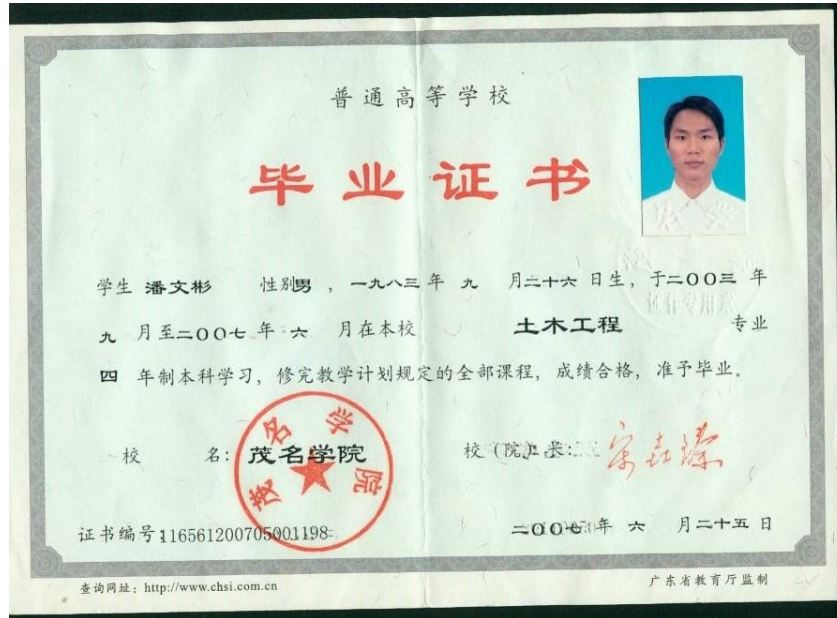 普通高等学校
毕业证书
学生 潘文彬 性别男 ，一九八三 年 九 月二十六 日生，于二〇〇三 年
九 月至二〇〇七 年 六 月在本校 土木工程 专业
四 年制本科学习，修完教学计划规定的全部课程，成绩合格，准予毕业。
校 名：茂名学院
茂名学院
校（院）长：
二〇〇七 年 六 月二十五 日
证书编号:116561200705001198
查询网址：http://www.chsi.com.cn
广东省教育厅监制